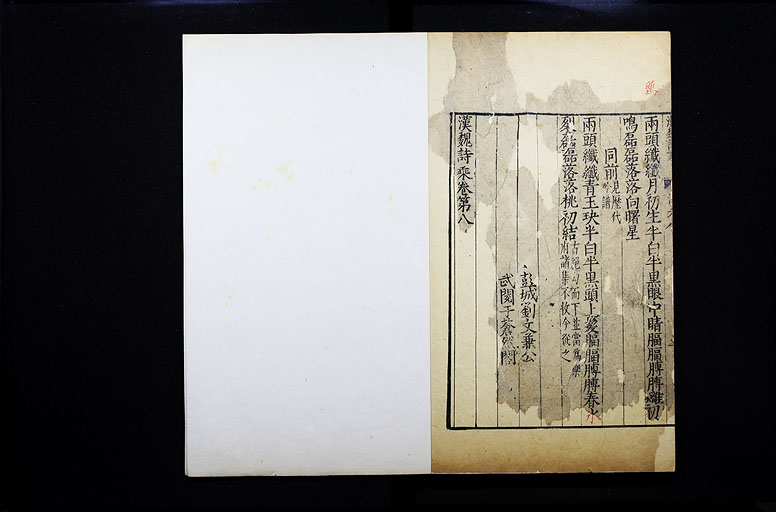 兩頭纖纖月初生半白半黑眼中睛腷腷膊膊雞初
鳴磊磊落落向曙星
同前見歷代吟譜
兩頭纖纖青玉玦半白半黑頭上髮腷腷膊膊春冰
裂磊磊落落桃初結古絕句而下並當為樂府諸集不收今從之
彭城劉文
武閿子蒼
漢魏詩乘卷第八